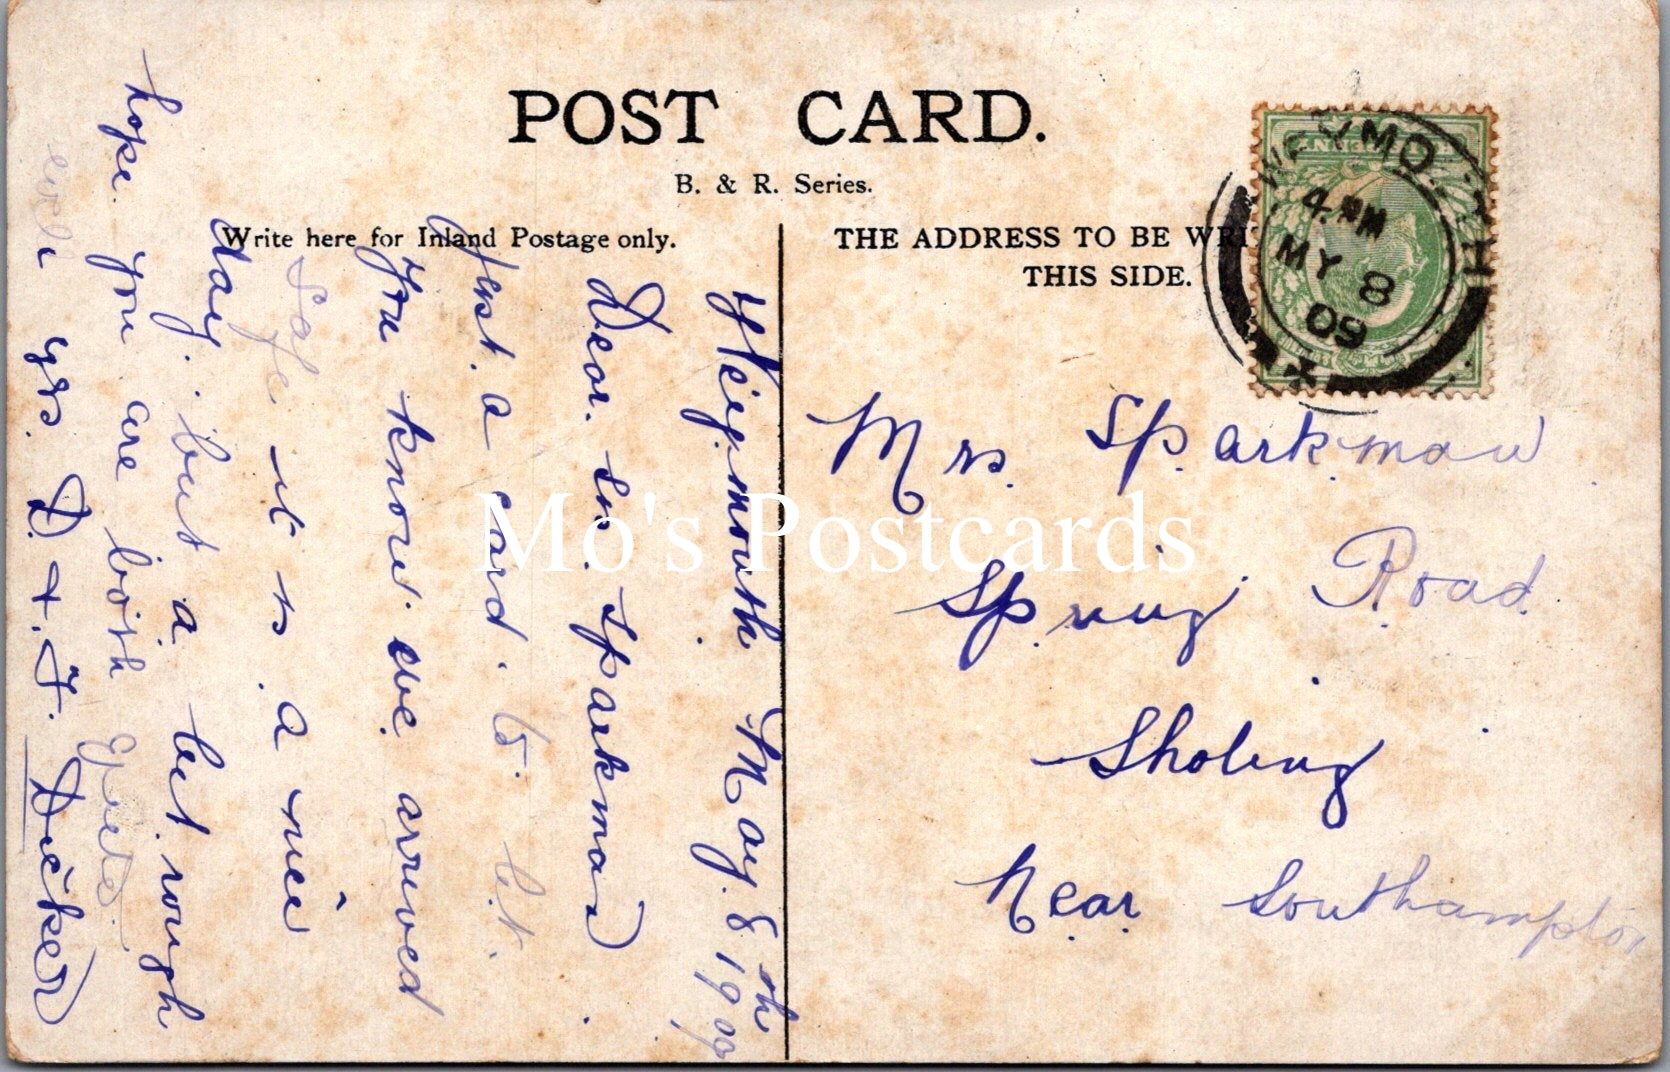 POST CARD.
B. & R. Series.
Write here for Inland Postage only.
THE ADDRESS TO BE WRI
THIS SIDE.
WEYMO TH
4. PM
MY 8
09
Weymouth May 8th 1909
Dear Mrs Sparkman
Just a card to let
you know we arrived
Safe it is a nice
day. but a bit rough
hope you are both quite
well yrs. D. + F. Dicker
Mrs. Sparkman
Spring Road
Sholing
Near Southampton
Mo's Postcards